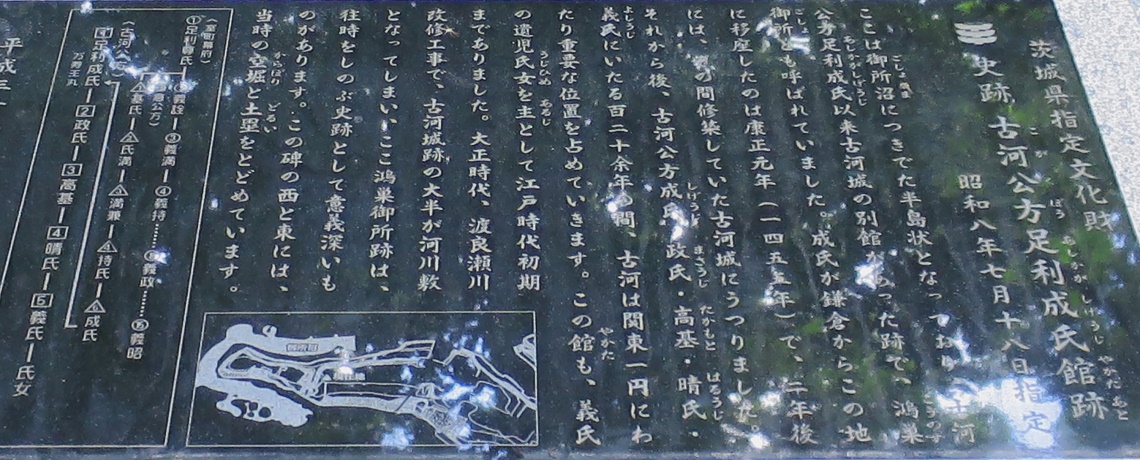 茨城県指定文化財
史跡 古河公方足利成氏館跡
こ が く ぼう あしかが しげうじ やかたあと
昭和八年七月十八日指定
ここは御所沼につきでた半島状となっており、古河
公方足利成氏以来古河城の別館があった跡で、鴻巣
御所とも呼ばれていました。成氏が鎌倉からこの地
に移座したのは康正元年(一四五五年)で、二年後
には、その間修築していた古河城にうつりました。
それから後、古河公方成氏・政氏・高基・晴氏・
義氏にいたる百二十余年の間、古河は関東一円にわ
たり重要な位置を占めていきます。この館も、義氏
の遺児氏女を主として江戸時代初期
まであり​ました。大正時代、渡良瀬川
改修工事で、古河城跡の大半が河川敷
となってしまい、ここ鴻巣御所跡は、
往時をしのぶ史跡として意義深いも
のがあります。この碑の西と東には、
当時の空堀と土塁をとどめています。
(室町幕府)
①足利尊氏 義詮 ③義満 ④義持 義政 義昭
基氏 氏満 満兼 持氏 成氏
(古河公方)
1 足利成氏 2 政氏 3 高基 4 晴氏 5 義氏 氏女
万寿王丸
平成三